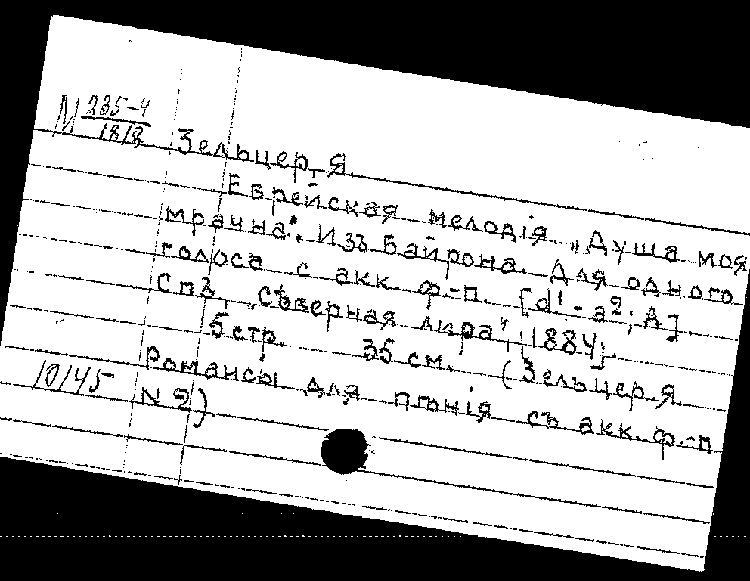 М 235-4
1818
Зельцер, Я.
Еврейская мелодія „Душа моя
мрачна“. Изъ Байрона. Для одного
голоса с акк. ф.-п. [d¹-a²; A].
Спб, „Сѣверная лира“, [1884].
5 стр. 35 см. (Зельцер Я.
Романсы для пѣнія съ акк. ф.-п
10145 N 2)